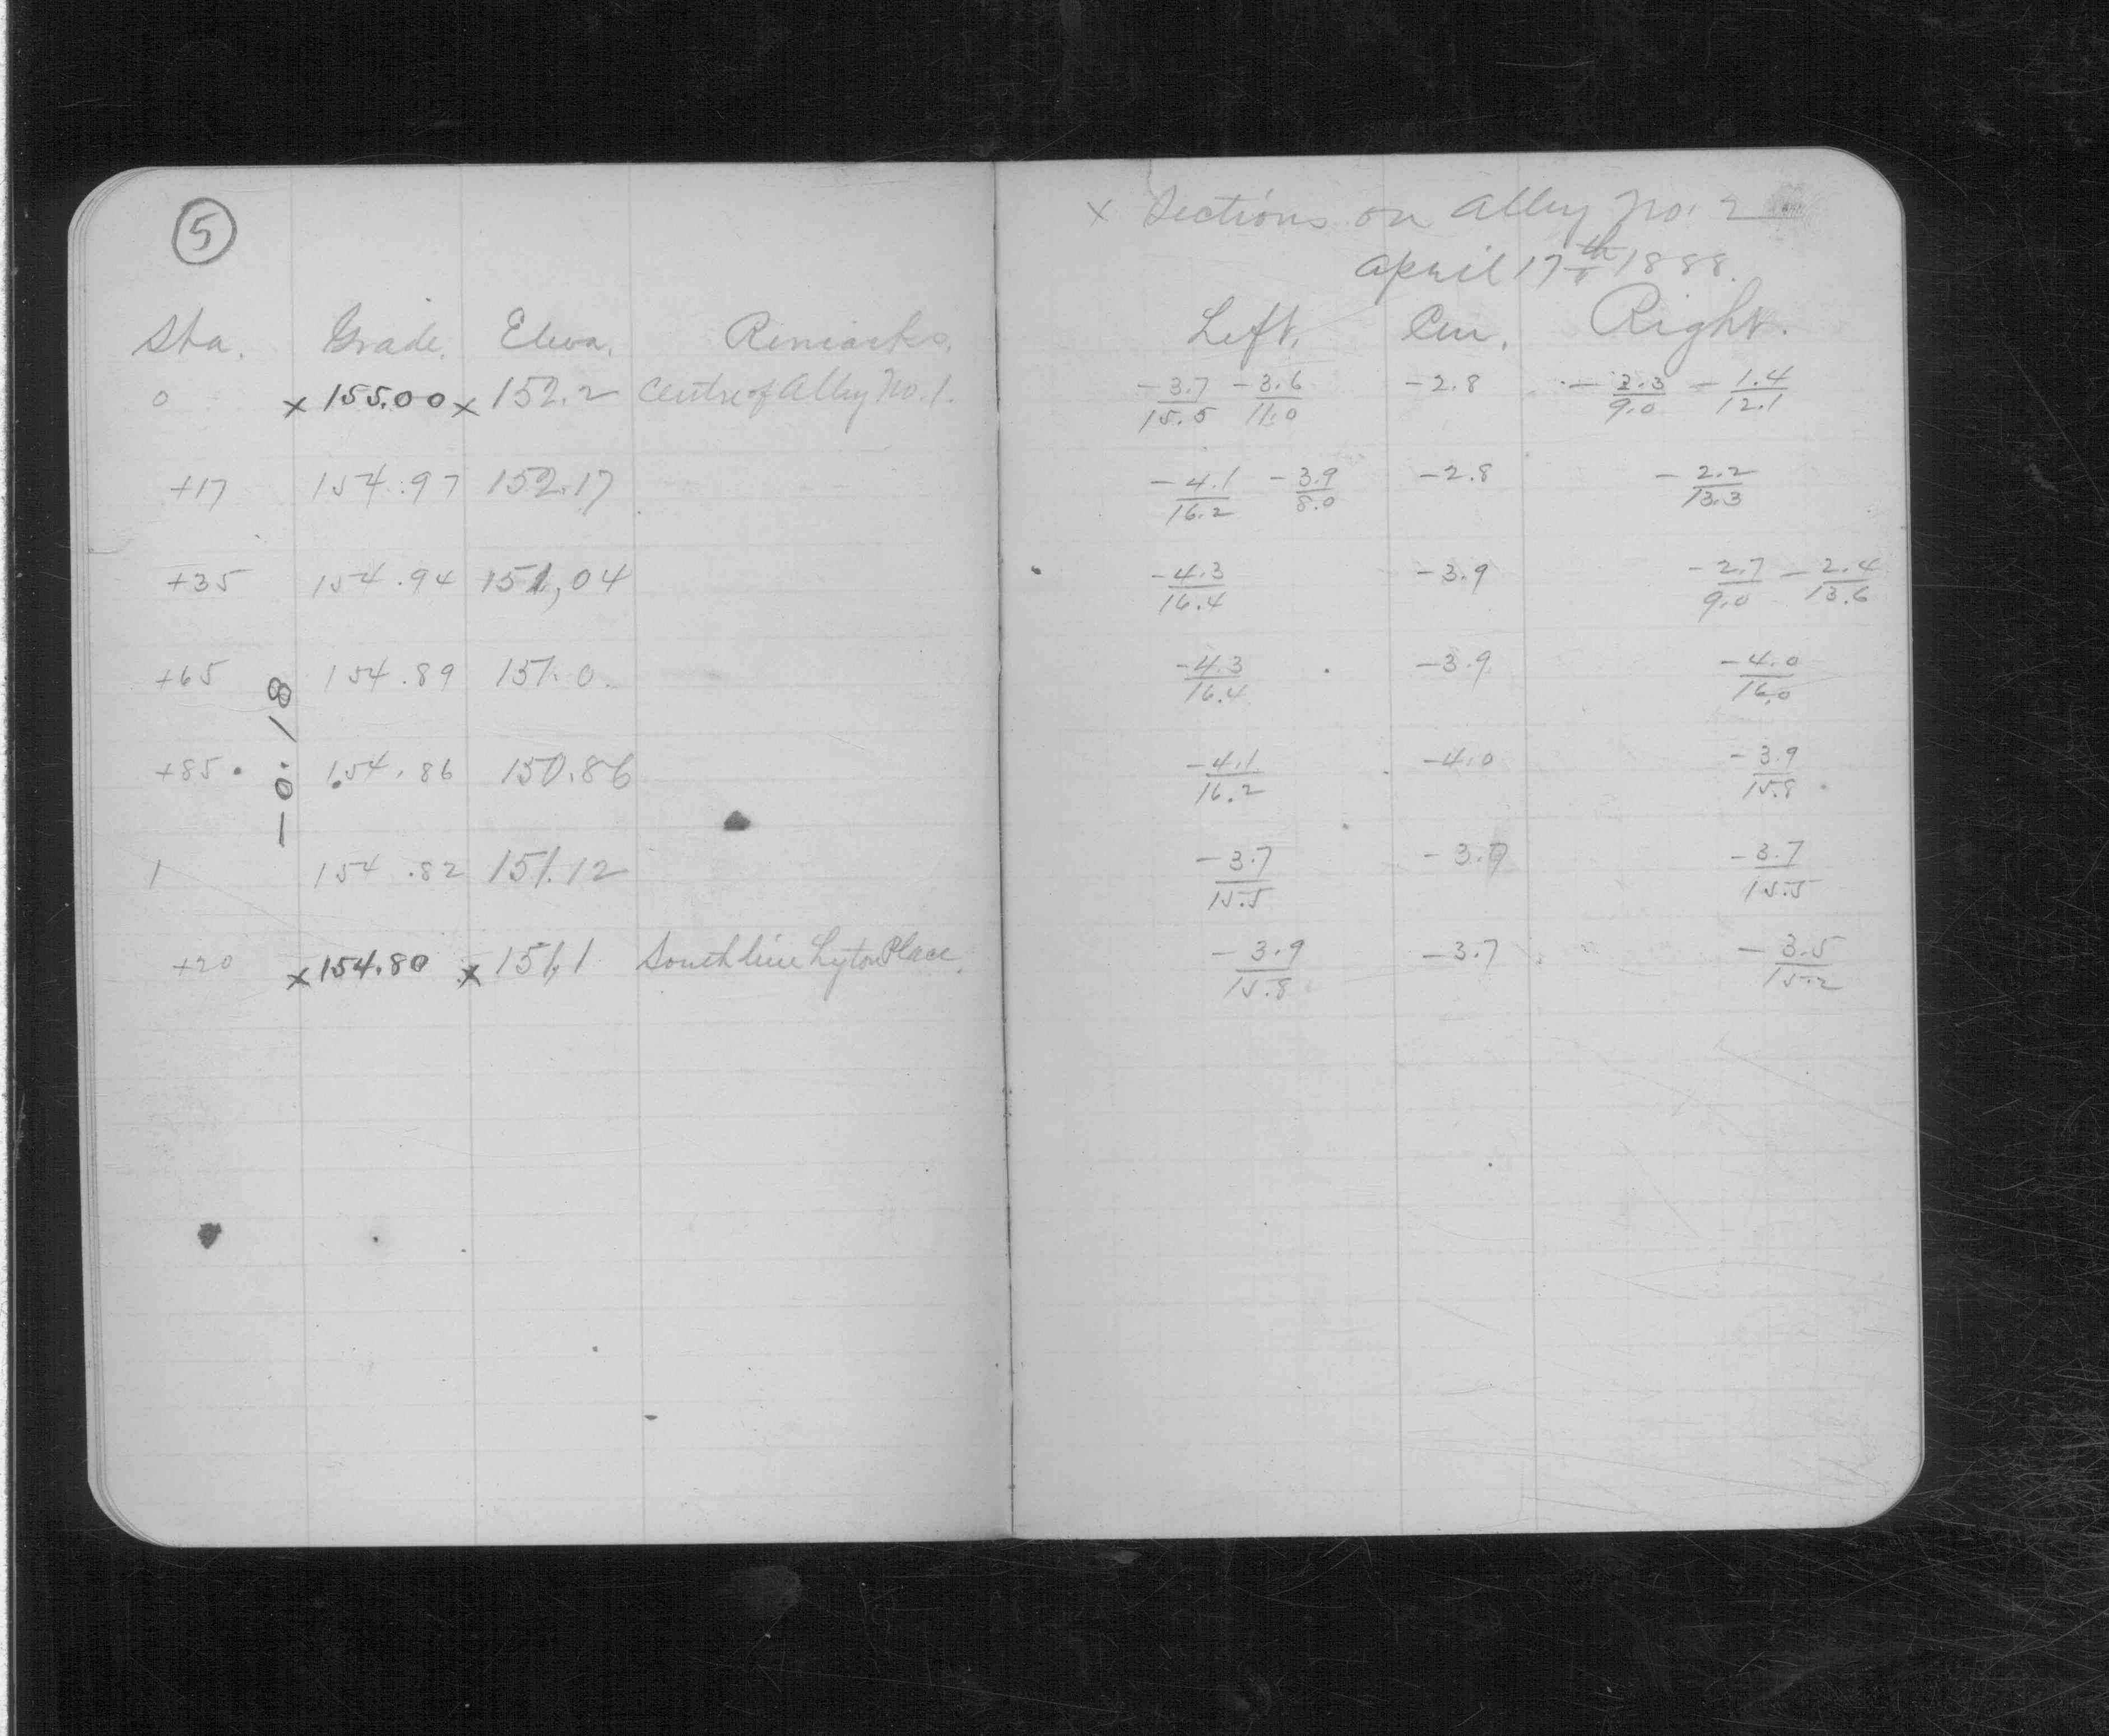 5
x Sections on Alley No. 2
April 17th 1888.
Sta. Grade. Eleva. Remarks. Left. Cen. Right.
0 x 155.00 x 152.2 Centre of Alley No. 1. -3.7/15.5 -3.6/11.0 -2.8 -2.3/9.0 -1.4/12.1
+17 154.97 152.17 -4.1/16.2 -3.9/8.0 -2.8 -2.2/13.3
+35 154.94 151,04 -4.3/16.4 -3.9 -2.7/9.0 -2.4/13.6
+65 154.89 151.0. -4.3/16.4 -3.9 -4.0/16.0
-0.18
+85. 154.86 150.86 -4.1/16.2 -4.0 -3.9/15.8
1 154.82 151.12 -3.7/15.5 -3.7/15.5
+20 x 154.80 x 151,1 South line Lyton Place. -3.9/15.8 -3.7 -3.5/15.2